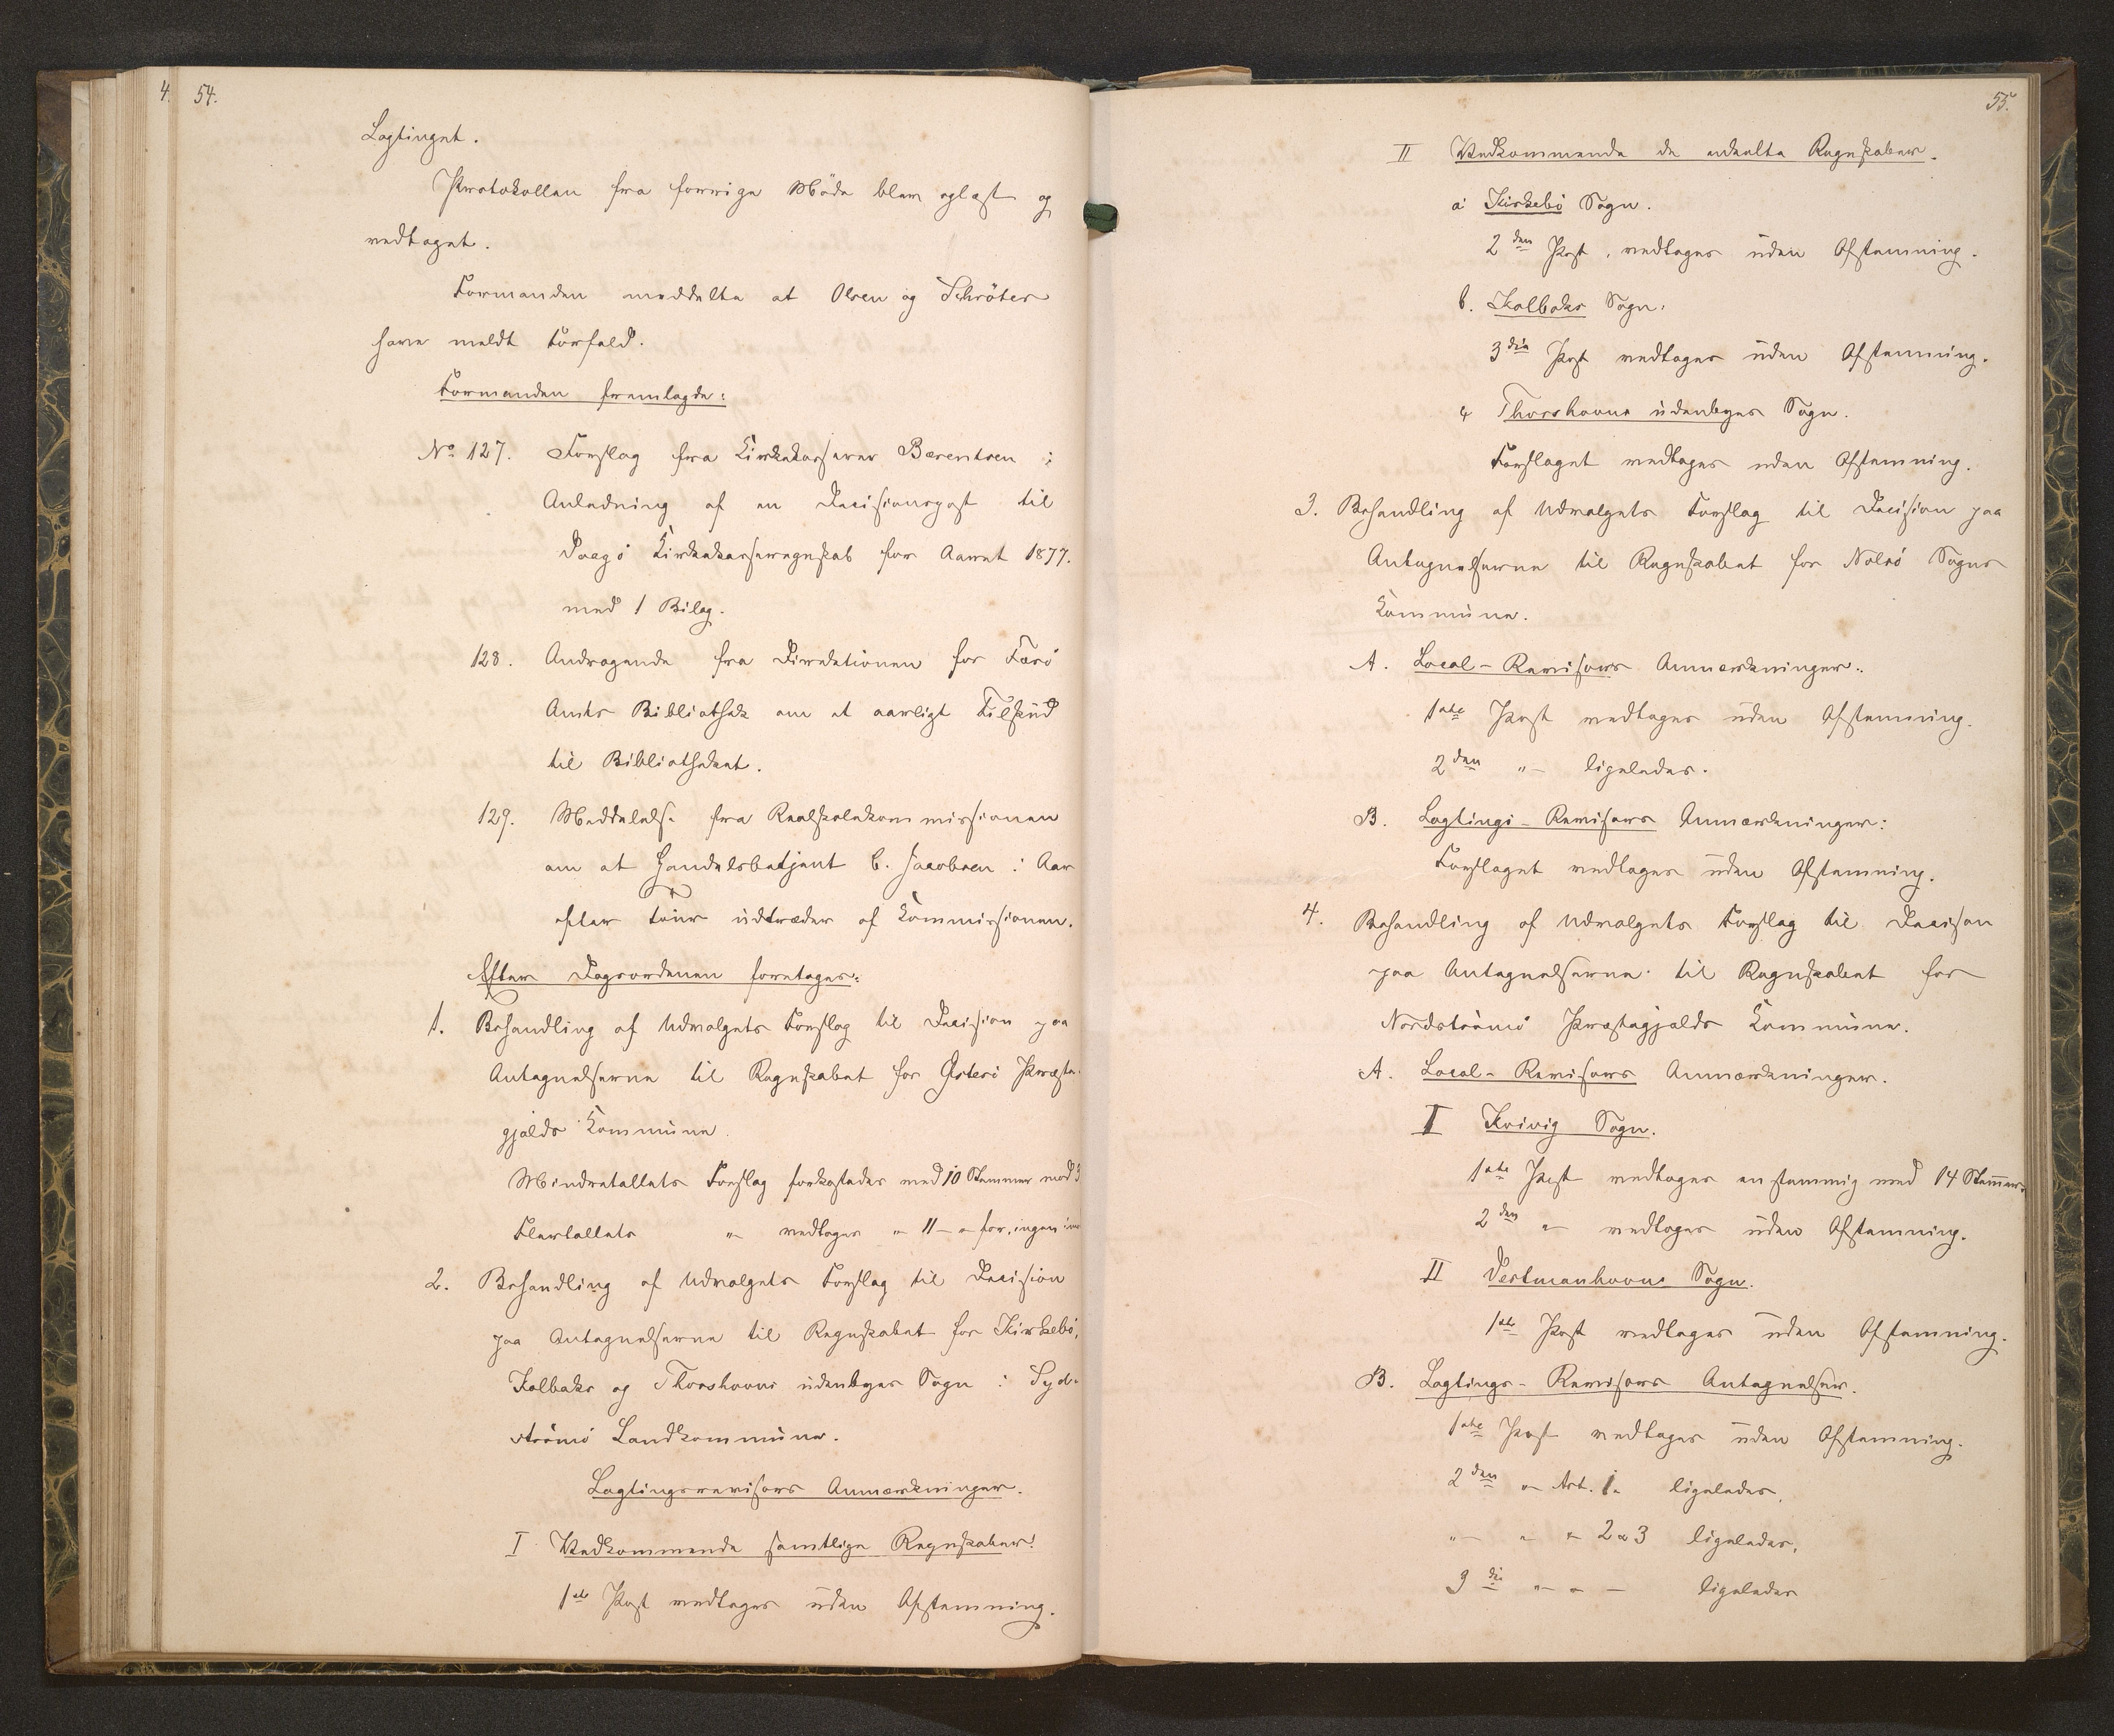 4. 54.
Lagtinget.
Protokollen fra forrige Möde blev oplæst og
vedtaget.
Formanden meddelte at Olsen og Schröter
have meldt Forfald.
Formanden fremlagde:
No. 127. Forslag fra Kirkekasserer Bærentsen i
Anledning af en Decisionspost til
Vaagö Kirkekasseregnskab for Aaret 1877.
med 1 Bilag.
128. Andragende fra Direktionen for Færö
Amts Bibliothek om et aarligt Tilskud
til Bibliotheket.
129. Meddelelse fra Realskolekommissionen
om at Handelsbetjent C. Jacobsen i Aar
efter Tour udtræder af Kommissionen.
Efter Dagsordenen foretages:
1. Behandling af Udvalgets Forslag til Decision paa
Antegnelserne til Regnskabet for Österö Præste-
gjelds Kommune
Mindretallets Forslag forkastedes med 10 Stemmer mod 3
Flertallets " — vedtoges " — 11 — " for, ingen imod
2. Behandling af Udvalgets Forslag til Decision
paa Antegnelserne til Regnskabet for Kirkebö,
Kalbaks og Thorshavns udenbyes Sogn i Syd-
strömö Landkommune.
Lagtingsrevisors Anmærkninger.
I Vedkommende samtlige Regnskaber:
1ste Post vedtoges uden Afstemning.
55.
II Vedkommende de enkelte Regnskaber.
a Kirkebö Sogn.
2den Post, vedtoges uden Afstemning.
b. Kalbaks Sogn.
3die Post vedtoges uden Afstemning.
c Thorshavns udenbyes Sogn.
Forslaget vedtoges uden Afstemning.
3. Behandling af Udvalgets Forslag til Decision paa
Antegnelserne til Regnskabet for Nolsö Sogns
Kommune.
A. Local-Revisors Anmærkninger.
1ste Post vedtoges uden Afstemning.
2den " — ligeledes.
B. Lagtings-Revisors Anmærkninger:
Forslaget vedtoges uden Afstemning.
4. Behandling af Udvalgets Forslag til Decison
paa Antegnelserne til Regnskabet for
Nordströmö Præstegjelds Kommune.
A. Local-Revisors Anmærkninger.
I Kvivig Sogn.
1ste Post vedtoges enstemmig med 14 Stemmer.
2den " — vedtoges uden Afstemning.
II Vestmanhavns Sogn.
1ste Post vedtoges uden Afstemning.
B. Lagtings-Revisors Antegnelser.
1ste Post vedtoges uden Afstemning.
2den " — Art. 1. ligeledes,
" — " — " — 2 & 3 ligeledes,
3die " — " — ligeledes